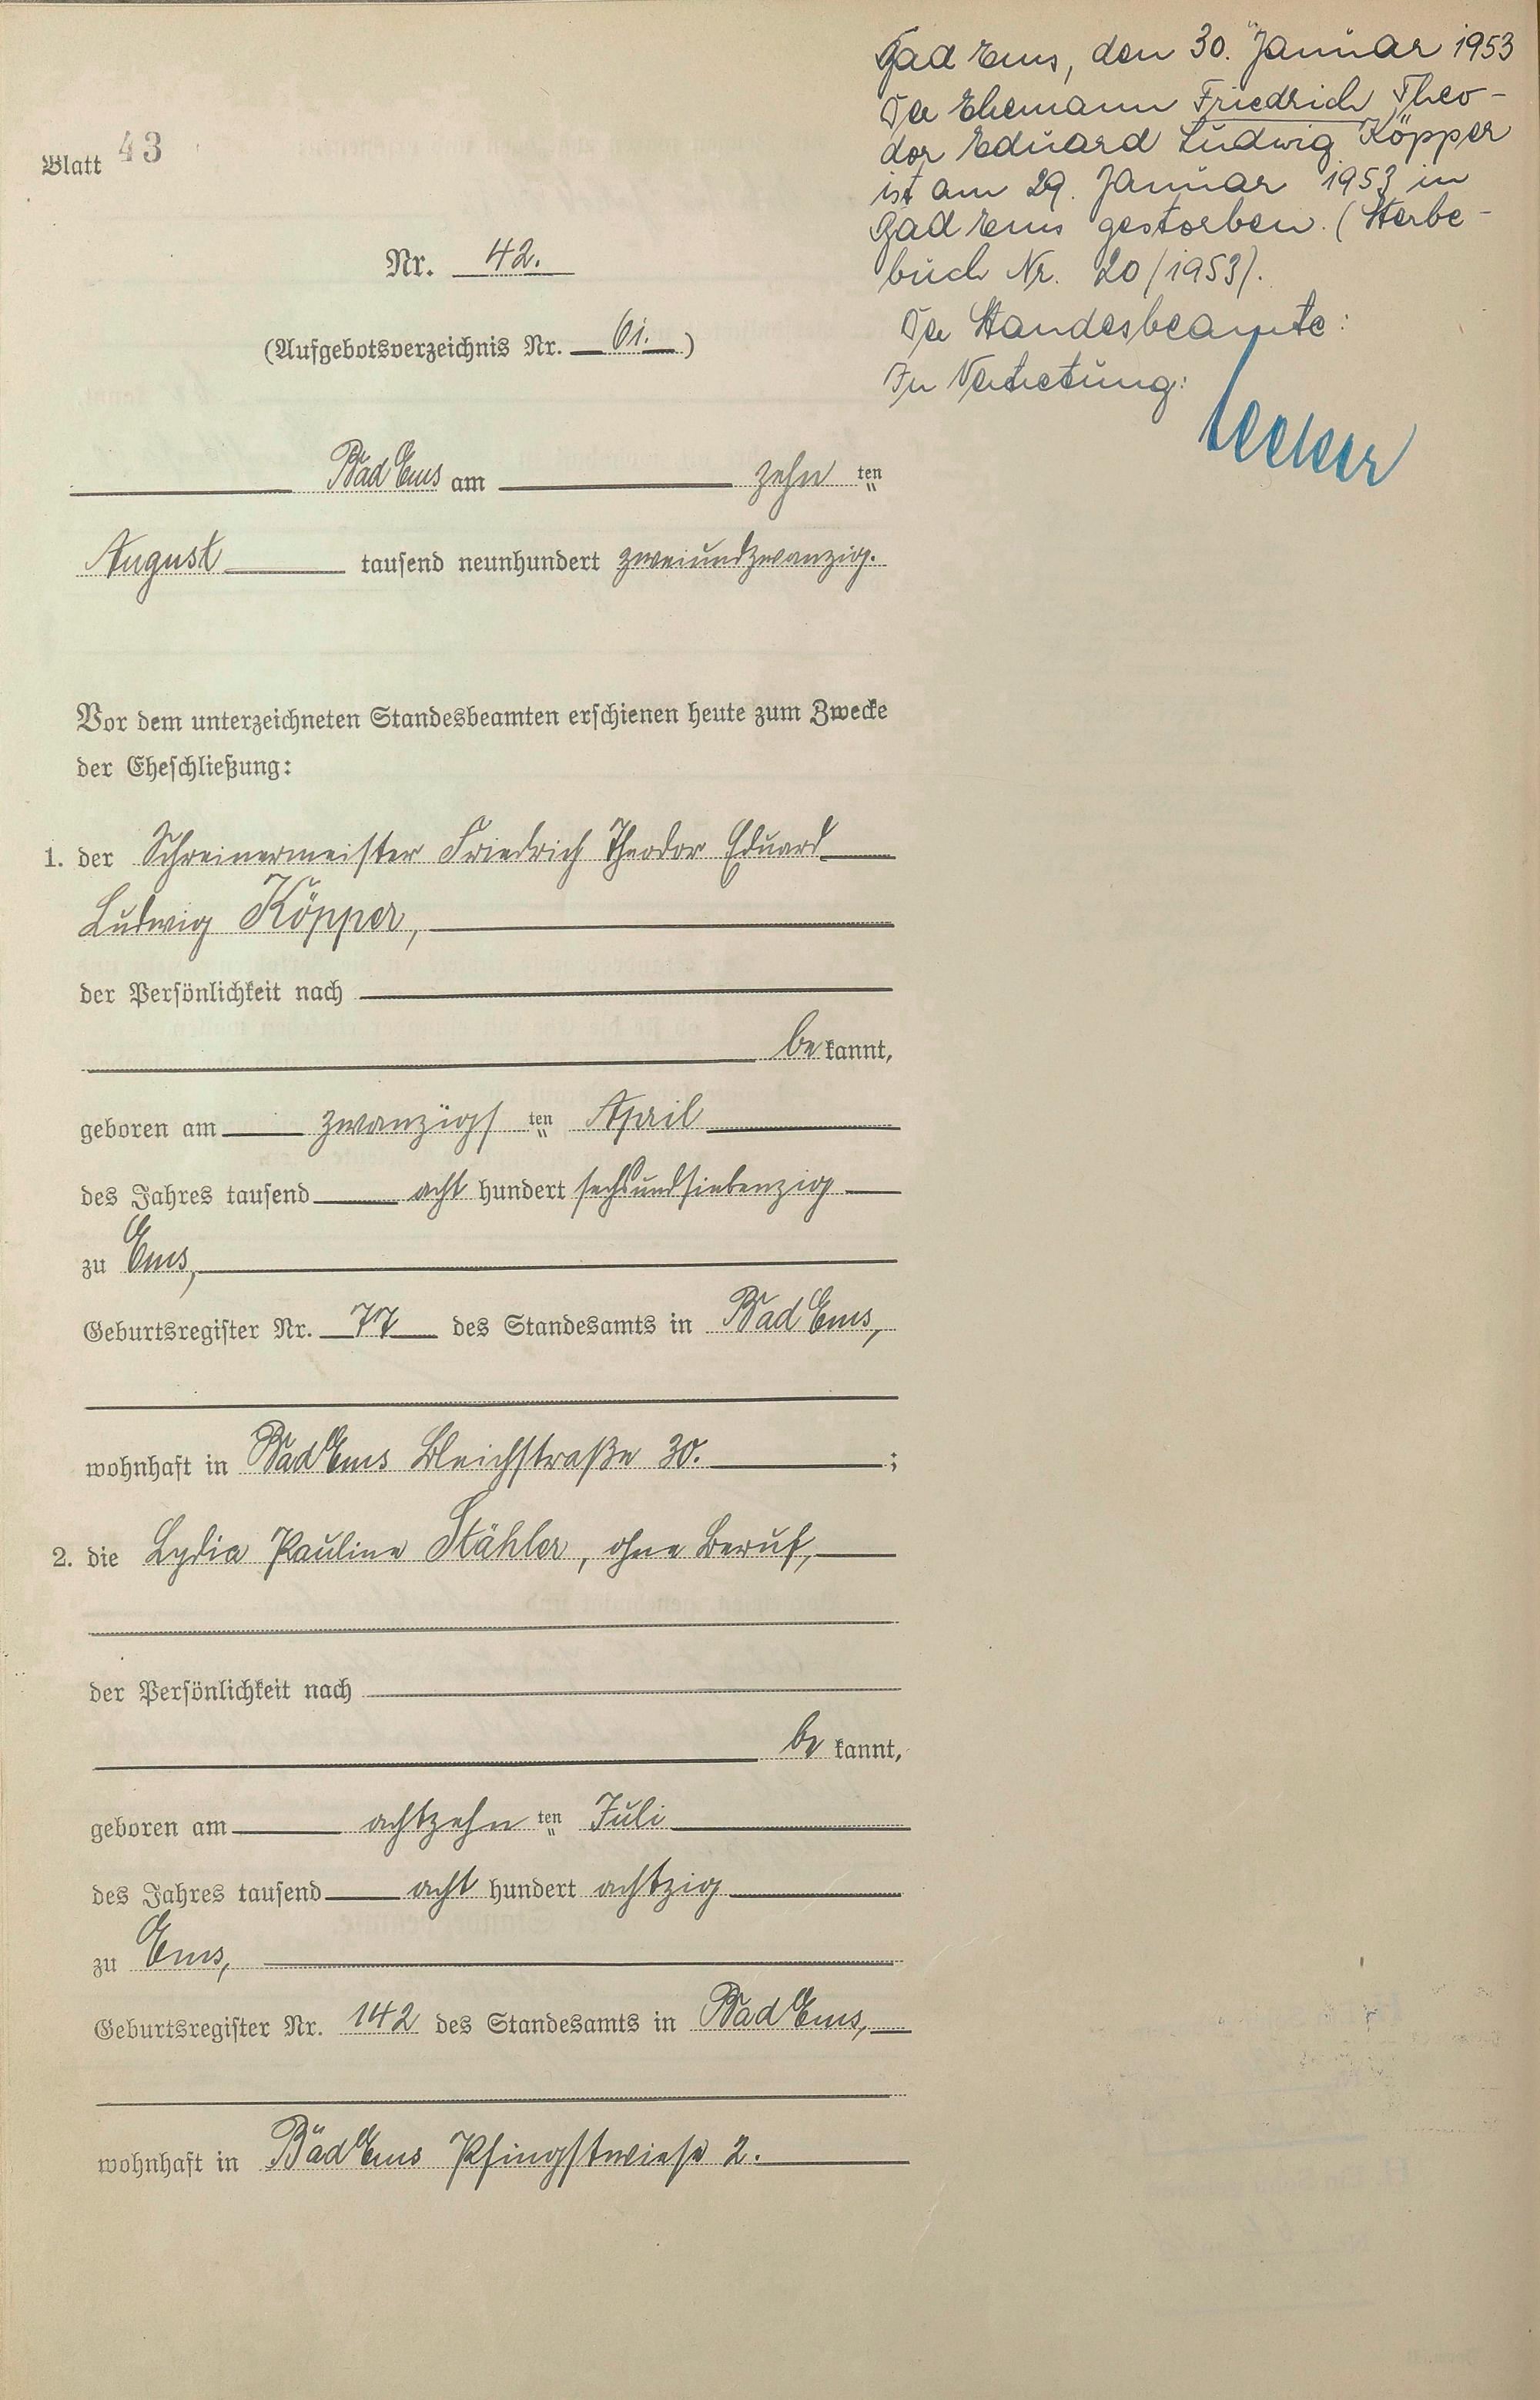 Blatt 43
Nr. 42.
(Aufgebotsverzeichnis Nr. 61.)
Bad Ems am zehn ten
August tausend neunhundert zweiundzwanzig.
Vor dem unterzeichneten Standesbeamten erschienen heute zum Zwecke
der Eheschließung:
1. der Schreinermeister Friedrich Theodor Eduard
Ludwig Köpper,
der Persönlichkeit nach
be kannt,
geboren am zwanzigs ten April
des Jahres tausend acht hundert sechsundsiebenzig
zu Ems,
Geburtsregister Nr. 77 des Standesamts in Bad Ems,
wohnhaft in Bad Ems Bleichstraße 30. ;
2. die Lydia Pauline Stähler, ohne Beruf,
der Persönlichkeit nach
be kannt,
geboren am achtzehn ten Juli
des Jahres tausend acht hundert achtzig
zu Ems,
Geburtsregister Nr. 142 des Standesamts in Bad Ems,
wohnhaft in Bad Ems Pfingstwiese 2.
Bad Ems, den 30. Januar 1953
Der Ehemann Friedrich Theo-
dor Eduard Ludwig Köpper
ist am 29. Januar 1953 in
Bad Ems gestorben. (Sterbe-
buch Nr. 20/1953).
Der Standesbeamte:
In Vertretung: